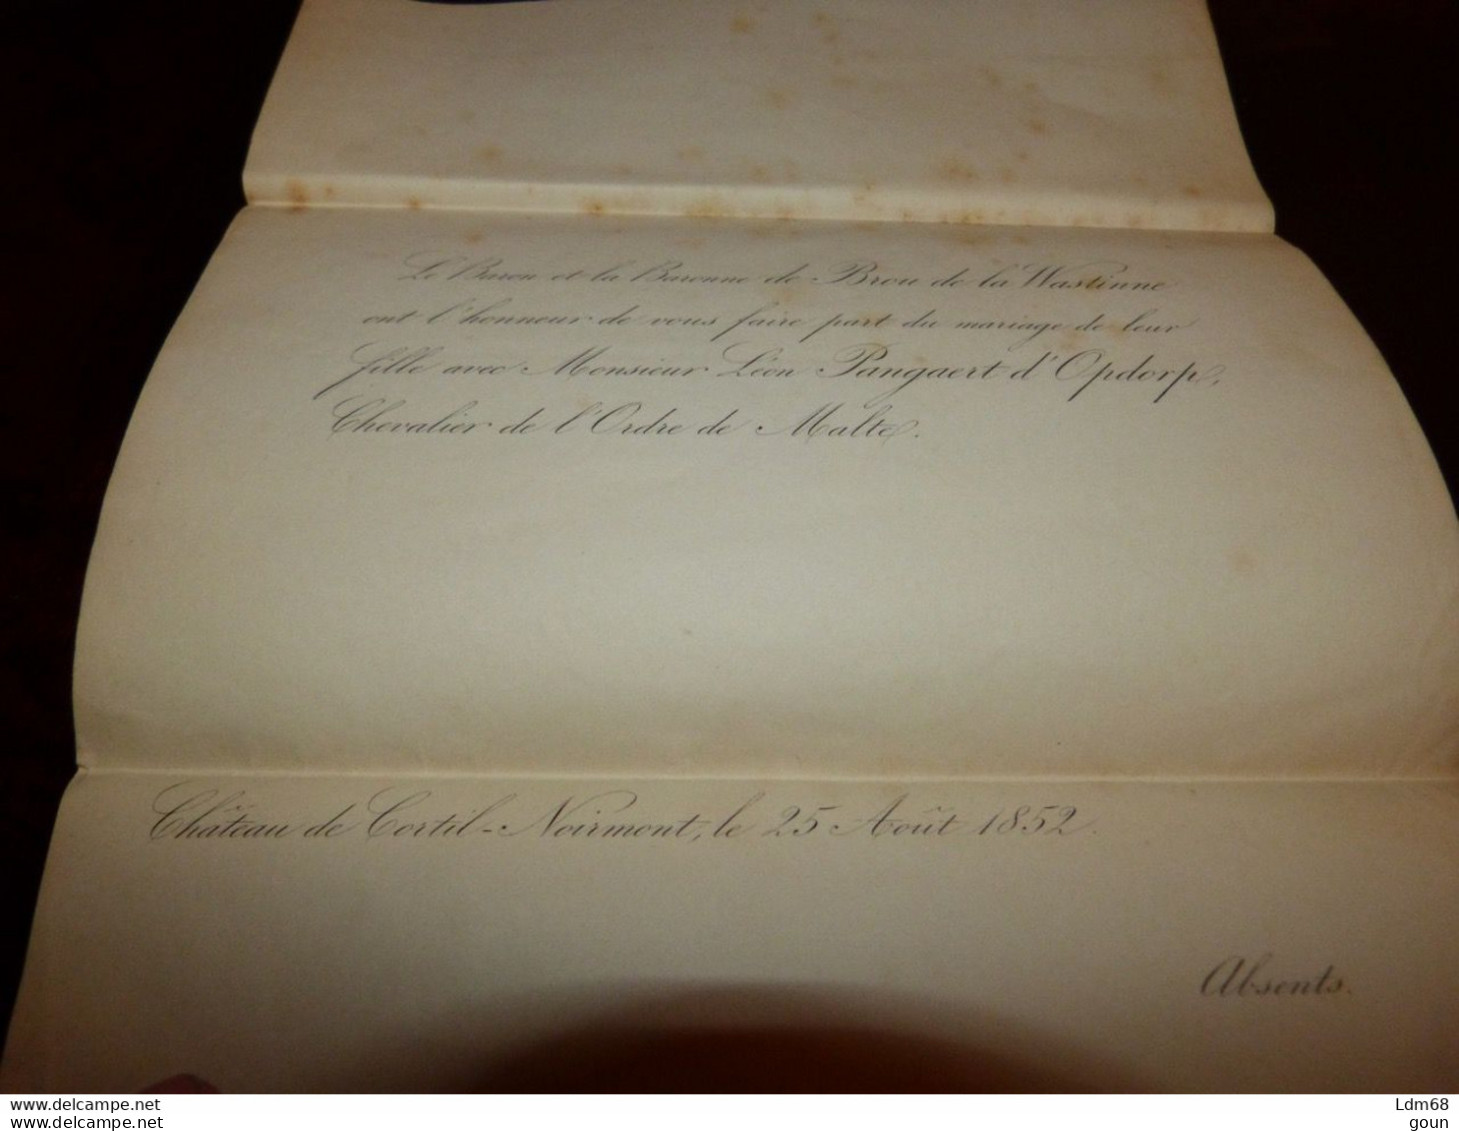 Le Baron et la Baronne de Brou de la Wastinne
ont l'honneur de vous faire part du mariage de leur
fille avec Monsieur Léon Pangaert d'Opdorp,
Chevalier de l'Ordre de Malte.
Château de Cortil-Noirmont, le 25 Août 1852.
Absents.
www.delcampe.net
www.delcampe.net
Ldm68
goun